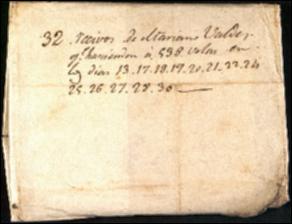 32. recivos de Mariano Valdes,
qe hacienden à 538 velas en
los dias 13.17.18.19.20.21.22.24
25.26.27.28.30